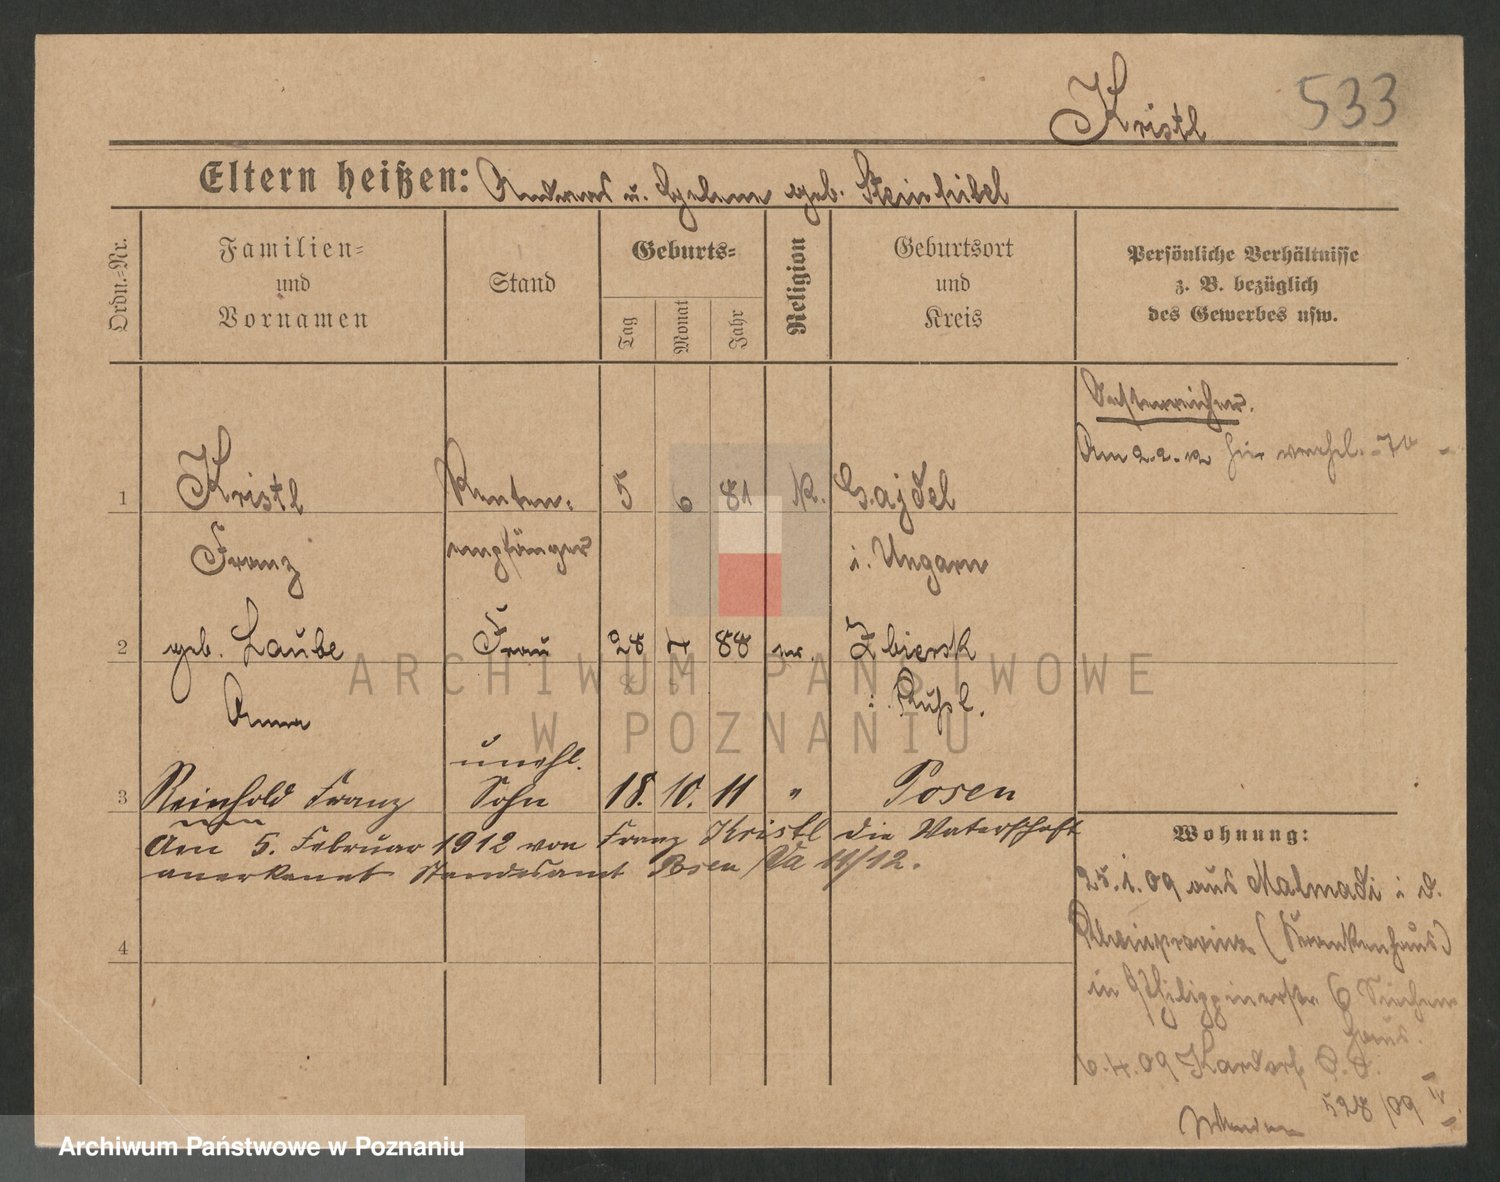 Kristl 533
Eltern heißen: Andreas u. Helene geb. Steinhübel
Ordn.-Nr.
Familien-
und
Vornamen
Stand
Geburts-
Tag
Monat
Jahr
Religion
Geburtsort
und
Kreis
Persönliche Verhältnisse
z. B. bezüglich
des Gewerbes usw.
Oesterreicher.
Am 2.2.12 hier verehel.
1 Kristl Renten- 5 6 81 k. Gajdel
Franz empfänger i. Ungarn
2 geb. Laube Frau 28 7 88 ev. Zbiersk
Anna i. Rußl.
unehl.
3 Reinhold Franz Sohn 18. 10. 11 " Posen
Am 5. Februar 1912 von Franz Kristl die Vaterschaft
anerkannt Standesamt Posen 11/12.
4
Wohnung:
25.1.09 aus Malmadi i. d.
Rheinprovinz (Krankenhaus)
in Philippinerstr. 6 Siechen
haus.
6.4.09
528/09 IV
ARCHIWUM PAŃSTWOWE
W POZNANIU
Archiwum Państwowe w Poznaniu